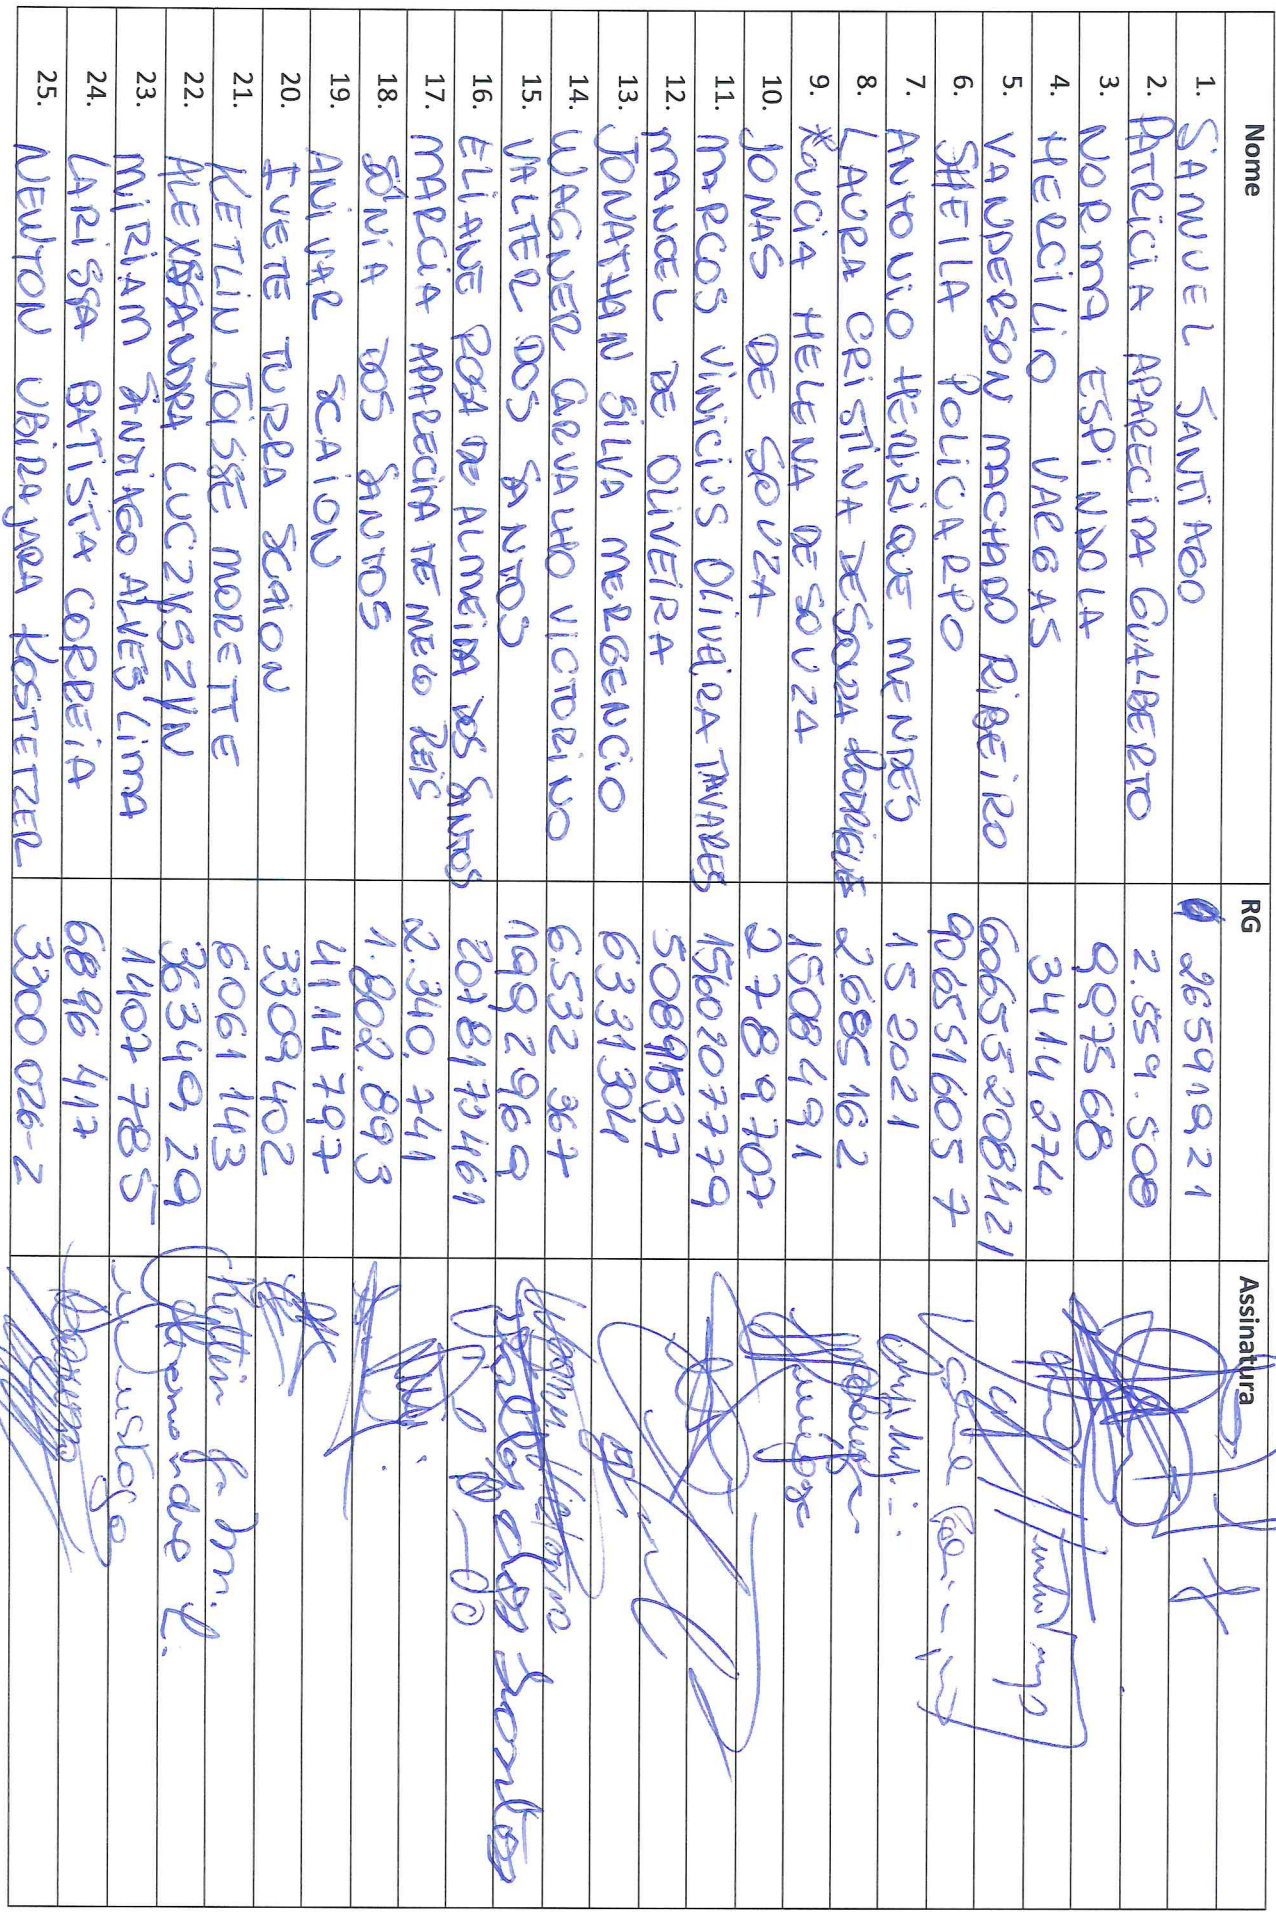 Nome RG Assinatura
1. SAMUEL SANTIAGO 265919921
2. PATRICIA APARECIDA GUALBERTO 2.559.508
3. NORMA ESPINDOLA 997568
4. HERCILIO VARGAS 3414274
5. VANDERSON MACHADO RIBEIRO 60655208421
6. SHEILA POLICARPO 906551605 7
7. ANTONIO HENRIQUE MENDES 15 2021
8. LAURA CRISTINA DE SOUZA RODRIGUES 2.685 162
9. LUCIA HELENA DE SOUZA 1508491
10. JONAS DE SOUZA 2789707
11. MARCOS VINICIUS OLIVEIRA TAVARES 1560207779
12. MANOEL DE OLIVEIRA 50891537
13. JONATHAN SILVA MERGENCIO 6331304
14. WAGNER CARVALHO VICTORINO 6.532 367
15. VALTER DOS SANTOS 1992969
16. ELIANE ROSA DE ALMEIDA DOS SANTOS 2078173461
17. MARCIA APARECIDA DE MELO REIS 2.340.741
18. SÔNIA DOS SANTOS 1.802.893
19. ANIVAR SCAION 4114797
20. IVETE TURRA SCAION 3309402
21. KETLIN JOISSE MORETTE 6061143
22. ALEXSSANDRA LUCZYSZYN 3634929
23. MIRIAM SANTIAGO ALVES LIMA 1407785
24. LARISSA BATISTA CORREIA 6896417
25. NEWTON UBIRAJARA KOSTETZER 3300026-2